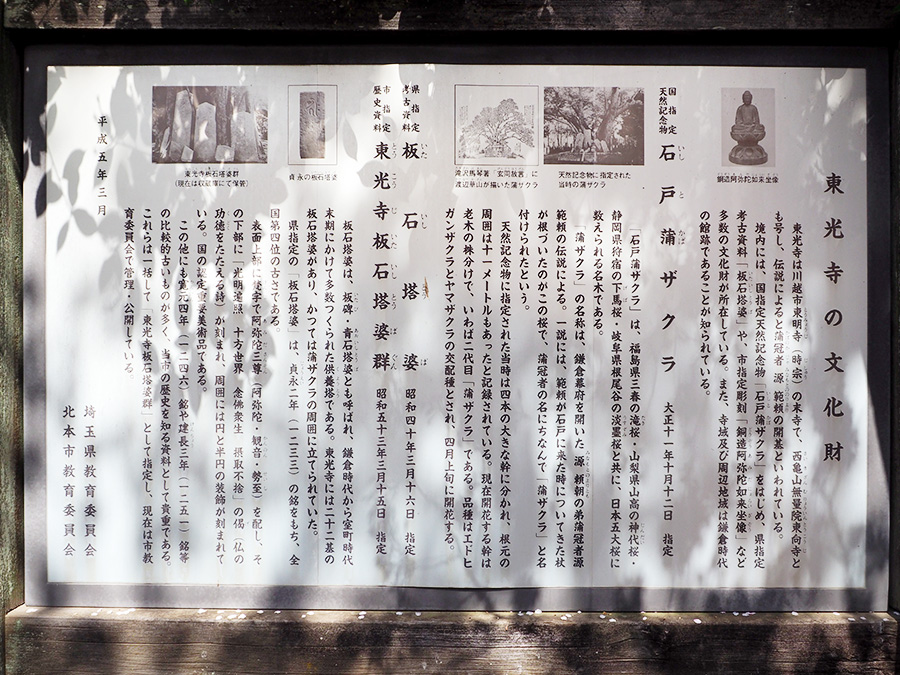 東光寺の文化財
東光寺は川越市東明寺（時宗）の末寺で、西亀山無量院東向寺と
も号し、伝説によると蒲冠者 源 範頼の開基といわれている。
境内には、国指定天然記念物「石戸蒲ザクラ」をはじめ、県指定
考古資料「板石塔婆」や、市指定彫刻「銅造阿弥陀如来坐像」など
多数の文化財が所在している。また、寺域及び周辺地域は鎌倉時代
の館跡であることが知られている。
銅造阿弥陀如来坐像
国指定
天然記念物
石戸蒲ザクラ 大正十一年十月十二日 指定
いし と かば
天然記念物に指定された
当時の蒲ザクラ
滝沢馬琴著「玄同放言」に
渡辺崋山が描いた蒲ザクラ
「石戸蒲ザクラ」は、福島県三春の滝桜・山梨県山高の神代桜・
静岡県狩宿の下馬桜・岐阜県根尾谷の淡墨桜と共に、日本五大桜に
数えられる名木である。
「蒲ザクラ」の名称は、鎌倉幕府を開いた源 頼朝の弟蒲冠者源
範頼の伝説による。一説には、範頼が石戸に来た時についてきた杖
が根づいたのがこの桜で、蒲冠者の名にちなんで「蒲ザクラ」と名
付けられたという。
天然記念物に指定された当時は四本の大きな幹に分かれ、根元の
周囲は十一メートルもあったと記録されている。現在開花する幹は
老木の株分けで、いわば二代目「蒲ザクラ」である。品種はエドヒ
ガンザクラとヤマザクラの交配種とされ、四月上旬に開花する。
県指定
考古資料
板石塔婆 昭和四十年三月十六日 指定
いた いし とう ば
市指定
歴史資料
東光寺板石塔婆群 昭和五十三年三月十五日 指定
とう こう じ いた いし とう ば ぐん
貞永の板石塔婆
東光寺板石塔婆群
（現在は収蔵庫にて保管）
板石塔婆は、板碑・青石塔婆とも呼ばれ、鎌倉時代から室町時代
末期にかけて多数つくられた供養塔である。東光寺には二十二基の
板石塔婆があり、かつては蒲ザクラの周囲に立てられていた。
県指定の「板石塔婆」は、貞永二年（一二三三）の銘をもち、全
国第四位の古さである。
表面上部に梵字で阿弥陀三尊（阿弥陀・観音・勢至）を配し、そ
の下部に「光明遍照 十方世界 念佛衆生 摂取不捨」の偈（仏の
功徳をたたえる詩）が刻まれ、周囲には円と半円の装飾が刻まれて
いる。国の認定重要美術品である。
この他にも寛元四年（一二四六）銘や建長三年（一二五一）銘等
の比較的古いものが多く、当市の歴史を知る資料として貴重である。
これらは一括して「東光寺板石塔婆群」として指定し、現在は市教
育委員会で管理・公開している。
平成五年三月
埼玉県教育委員会
北本市教育委員会